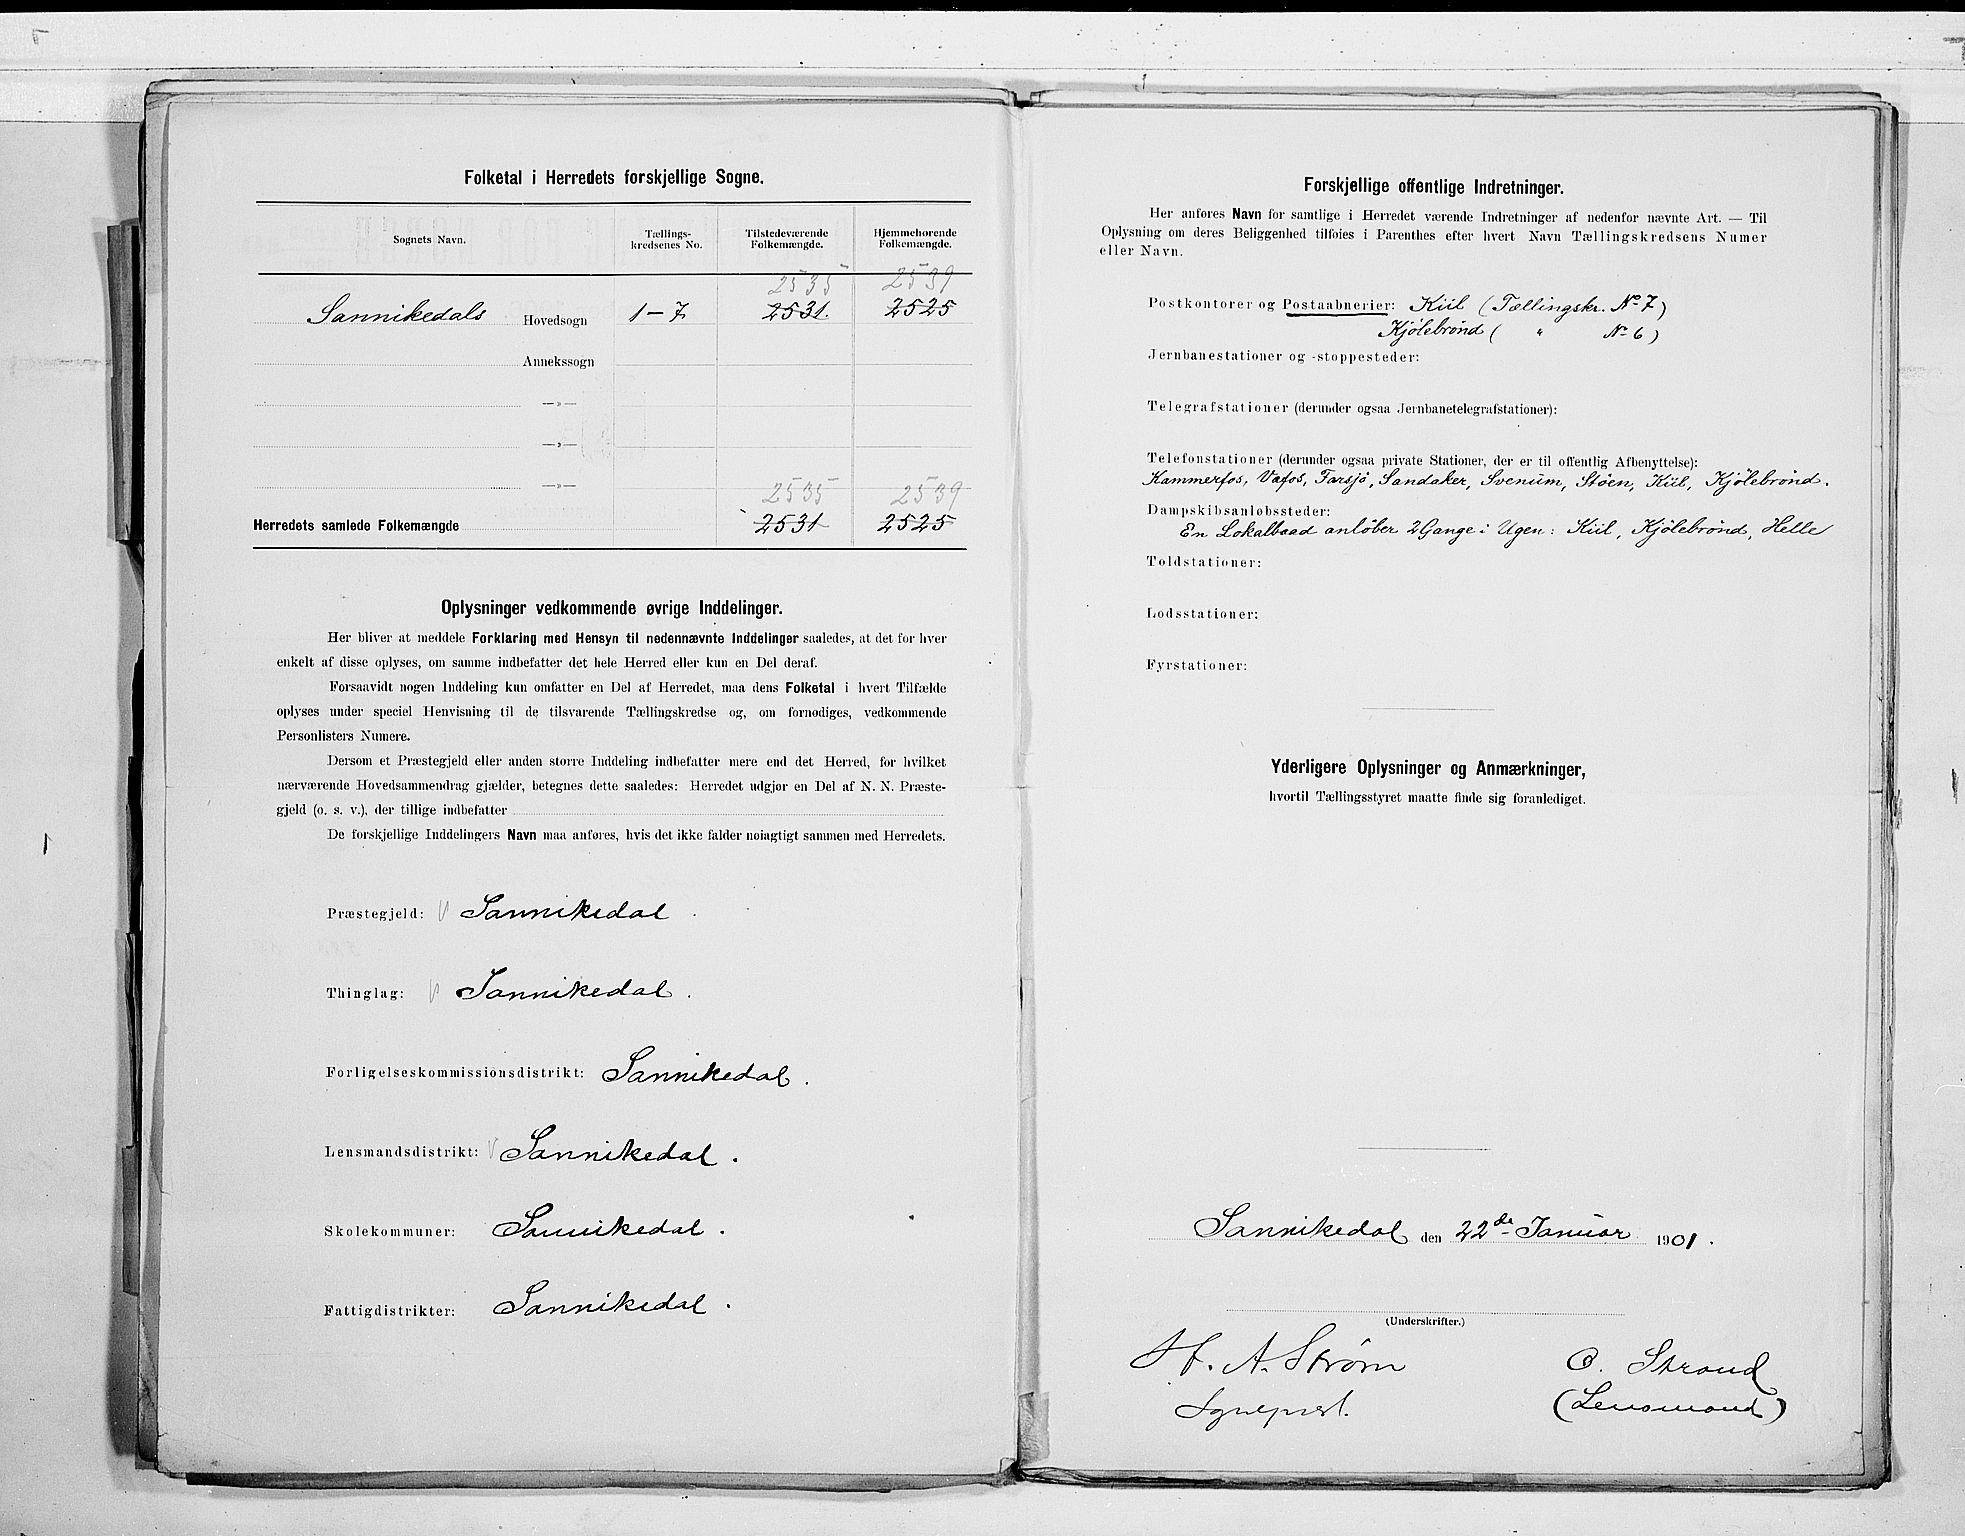 Folketal i Herredets forskjellige Sogne.
Sognets Navn.
Tællings-
kredsenes No.
Tilstedeværende
Folkemængde.
Hjemmehørende
Folkemængde.
2535 2539
Sannikedals Hovedsogn 1-7 2531. 2525
Annekssogn
—»—
—»—
—»—
2535 2539
Herredets samlede Folkemængde 2531 2525
Oplysninger vedkommende øvrige Inddelinger.
Her bliver at meddele Forklaring med Hensyn til nedennævnte Inddelinger saaledes, at det for hver
enkelt af disse oplyses, om samme indbefatter det hele Herred eller kun en Del deraf.
Forsaavidt nogen Inddeling kun omfatter en Del af Herredet, maa dens Folketal i hvert Tilfælde
oplyses under speciel Henvisning til de tilsvarende Tællingskredse og, om fornødiges, vedkommende
Personlisters Numere.
Dersom et Præstegjeld eller anden større Inddeling indbefatter mere end det Herred, for hvilket
nærværende Hovedsammendrag gjælder, betegnes dette saaledes: Herredet udgjør en Del af N. N. Præste-
gjeld (o. s. v.), der tillige indbefatter
De forskjellige Inddelingers Navn maa anføres, hvis det ikke falder nøiagtigt sammen med Herredets.
Præstegjeld: Sannikedal.
Thinglag: Sannikedal.
Forligelseskommissionsdistrikt: Sannikedal.
Lensmandsdistrikt: Sannikedal.
Skolekommuner: Sannikedal.
Fattigdistrikter: Sannikedal.
Forskjellige offentlige Indretninger.
Her anføres Navn for samtlige i Herredet værende Indretninger af nedenfor nævnte Art. — Til
Oplysning om deres Beliggenhed tilføies i Parenthes efter hvert Navn Tællingskredsens Numer
eller Navn.
Postkontorer og Postaabnerier: Kiil (Tællingskr. No 7)
Kjølebrønd ( " No 6)
Jernbanestationer og -stoppesteder:
Telegrafstationer (derunder ogsaa Jernbanetelegrafstationer):
Telefonstationer (derunder ogsaa private Stationer, der er til offentlig Afbenyttelse):
Kammerfos, Vafos, Farsjø, Sandaker, Svenum, Støen, Kiil, Kjølebrønd.
Dampskibsanløbssteder:
En Lokalbaad anløber 2 Gange i Ugen: Kiil, Kjølebrønd, Helle
Toldstationer:
Lodsstationer:
Fyrstationer:
Yderligere Oplysninger og Anmærkninger,
hvortil Tællingsstyret maatte finde sig foranlediget.
Sannikedal den 22de Januar 1901.
(Underskrifter.)
H. A. Strøm C. Strand
Sognepræst. (Lensmand)